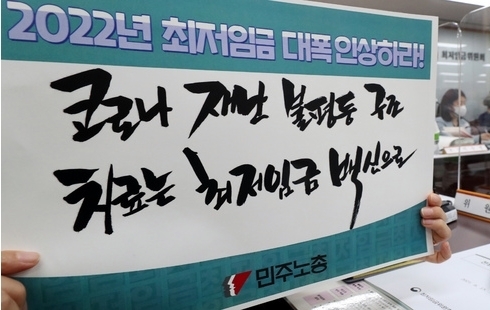 2022년 최저임금 대폭 인상하라!
최저임금위원회
코로나 재난 불평등 구조
치료는 최저임금 백신으로
위 원
민주노총